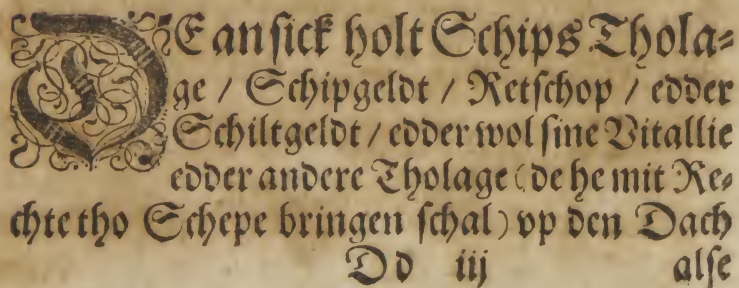 DE an sick holt Schips Thola⸗
ge / Schipgeldt / Retschop / edder
Schiltgeldt / edder wol sine Vitallie
edder andere Tholage (de he mit Re⸗
chte tho Schepe bringen schal) vp den Dach
Dd iij alse